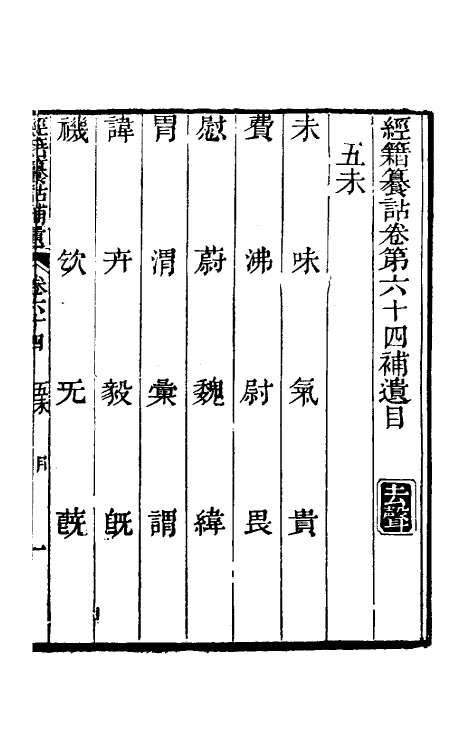 經籍籑詁卷第六十四補遺目 去聲
五未
未 味 氣 貴
費 沸 尉 畏
慰 蔚 魏 緯
胃 渭 彙 謂
諱 卉 毅 旣
禨 饮 旡 蔇
經籍籑詁補遺 卷六十四 五未 目 一